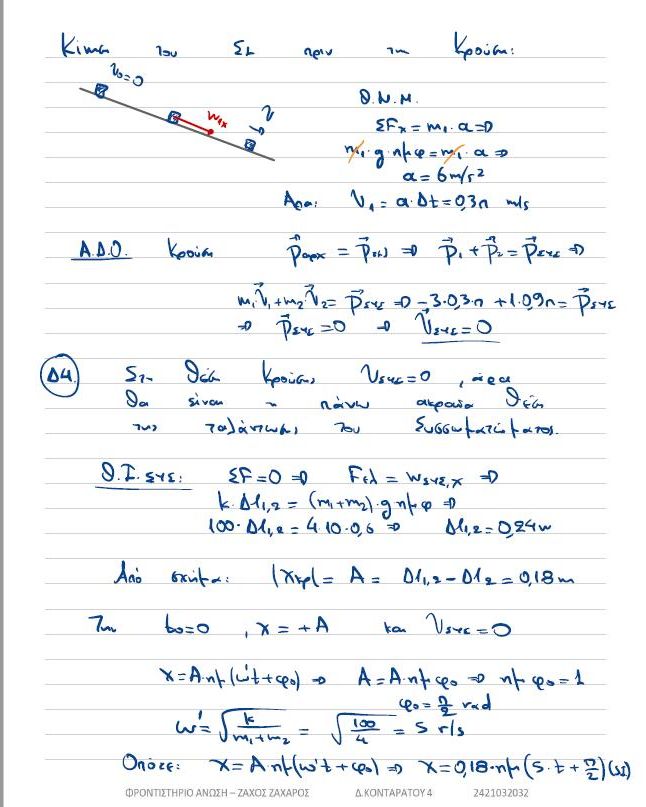 Κίνηση του Σ₁ πριν την κρούση:
υ₀=0
w₁ₓ
υ
Θ.Ν.Μ.
ΣFₓ = m₁·a ⇒
m₁·g·ημφ = m₁·a ⇒
a = 6m/s²
Άρα: υ₁ = a·Δt = 0,3π m/s
Α.Δ.Ο. Κρούση p⃗αρχ = p⃗τελ ⇒ p⃗₁ + p⃗₂ = p⃗συσ ⇒
m₁υ⃗₁ + m₂υ⃗₂ = p⃗συσ ⇒ -3·0,3π + 1·0,9π = p⃗συσ
⇒ p⃗συσ = 0 ⇒ υ⃗συσ = 0
Δ4. Στη θέση κρούσης υσυσ = 0, άρα
θα είναι η πάνω ακραία θέση
της ταλάντωσης του συσσωματώματος.
Θ.Ι.συσ: ΣF=0 ⇒ Fελ = wσυσ,x ⇒
k·Δl₁,₂ = (m₁+m₂)·g ημφ ⇒
100·Δl₁,₂ = 4·10·0,6 ⇒ Δl₁,₂ = 0,24m
Από σχήμα: |xκρ| = A = Δl₁,₂ - Δl₂ = 0,18m
Την t₀=0, x=+A και υσυσ=0
x = A·ημ(ω't+φ₀) ⇒ A = A·ημφ₀ ⇒ ημφ₀ = 1
φ₀ = π/2 rad
ω' = √(k/(m₁+m₂)) = √(100/4) = 5 r/s
Οπότε: x = A ημ(ω't+φ₀) ⇒ x = 0,18·ημ(5·t + π/2) (SI)
ΦΡΟΝΤΙΣΤΗΡΙΟ ΑΝΩΣΗ – ΖΑΧΟΣ ΖΑΧΑΡΟΣ Δ.ΚΟΝΤΑΡΑΤΟΥ 4 2421032032